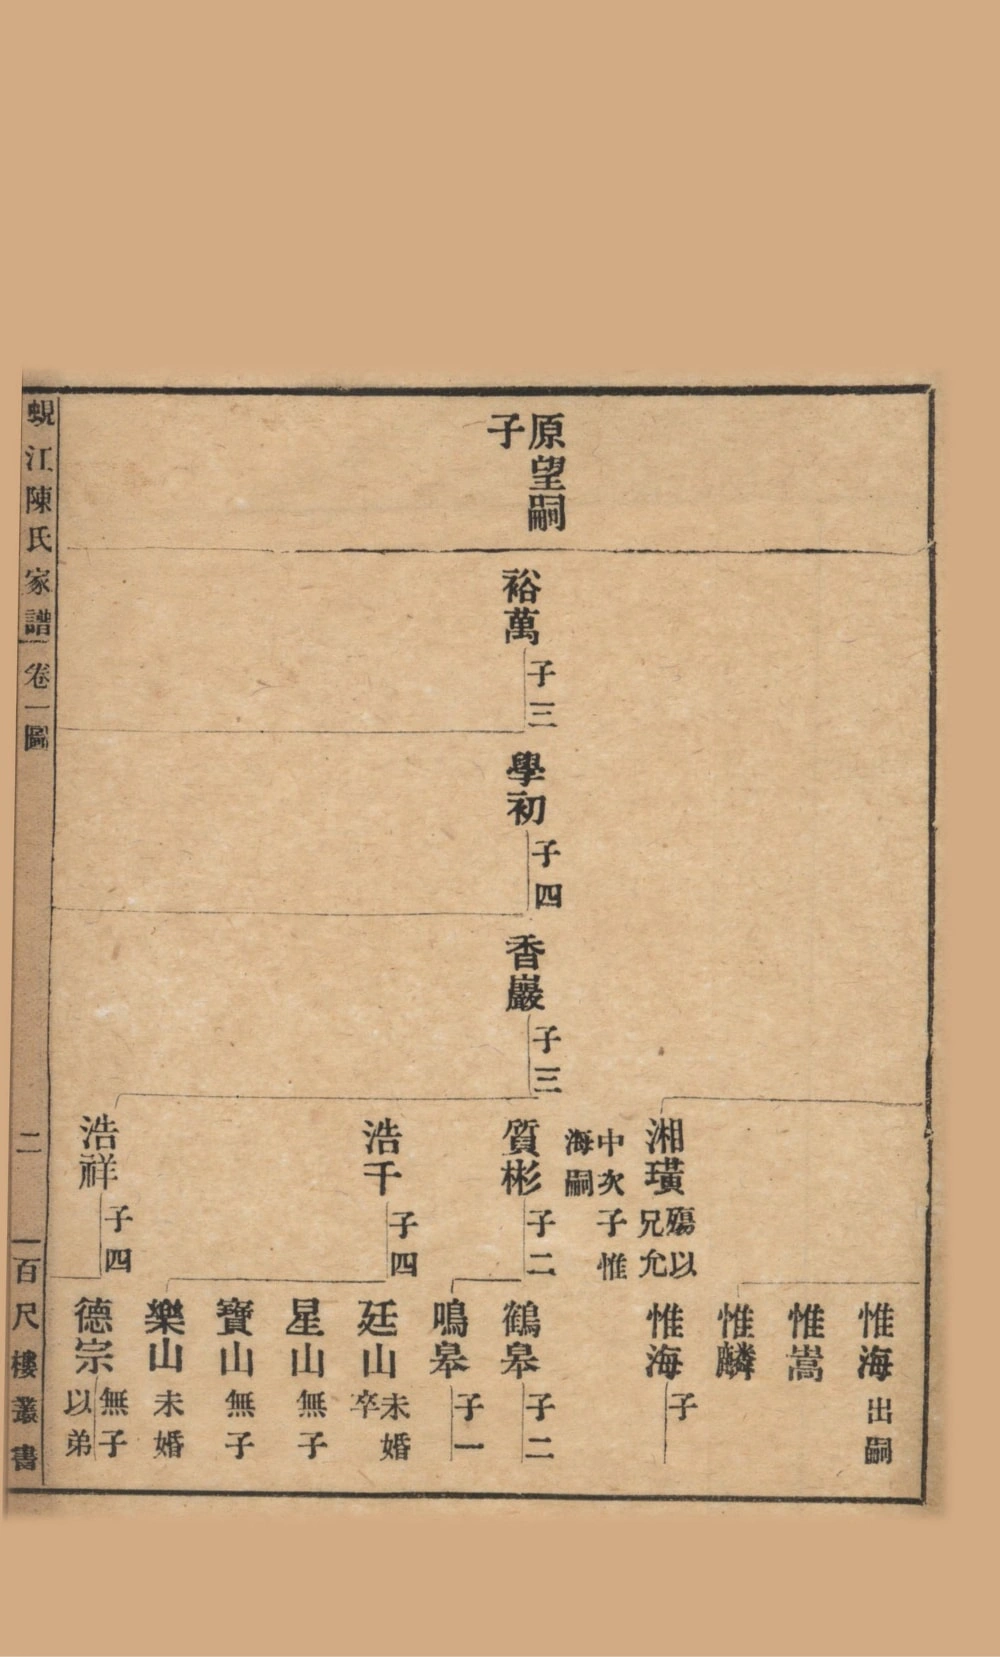 惟海出嗣
惟嵩
惟麟
湘璜殤以
兄允
中次子惟
海嗣
惟海子
原望嗣
子
裕萬子三
學初子四
香巖子三
質彬子二
鶴皋子二
鳴皋子一
浩千子四
廷山未婚
卒
星山無子
寶山無子
樂山未婚
浩祥子四
德宗無子
以弟
蜆江陳氏家譜 卷一圖 二 百尺樓叢書